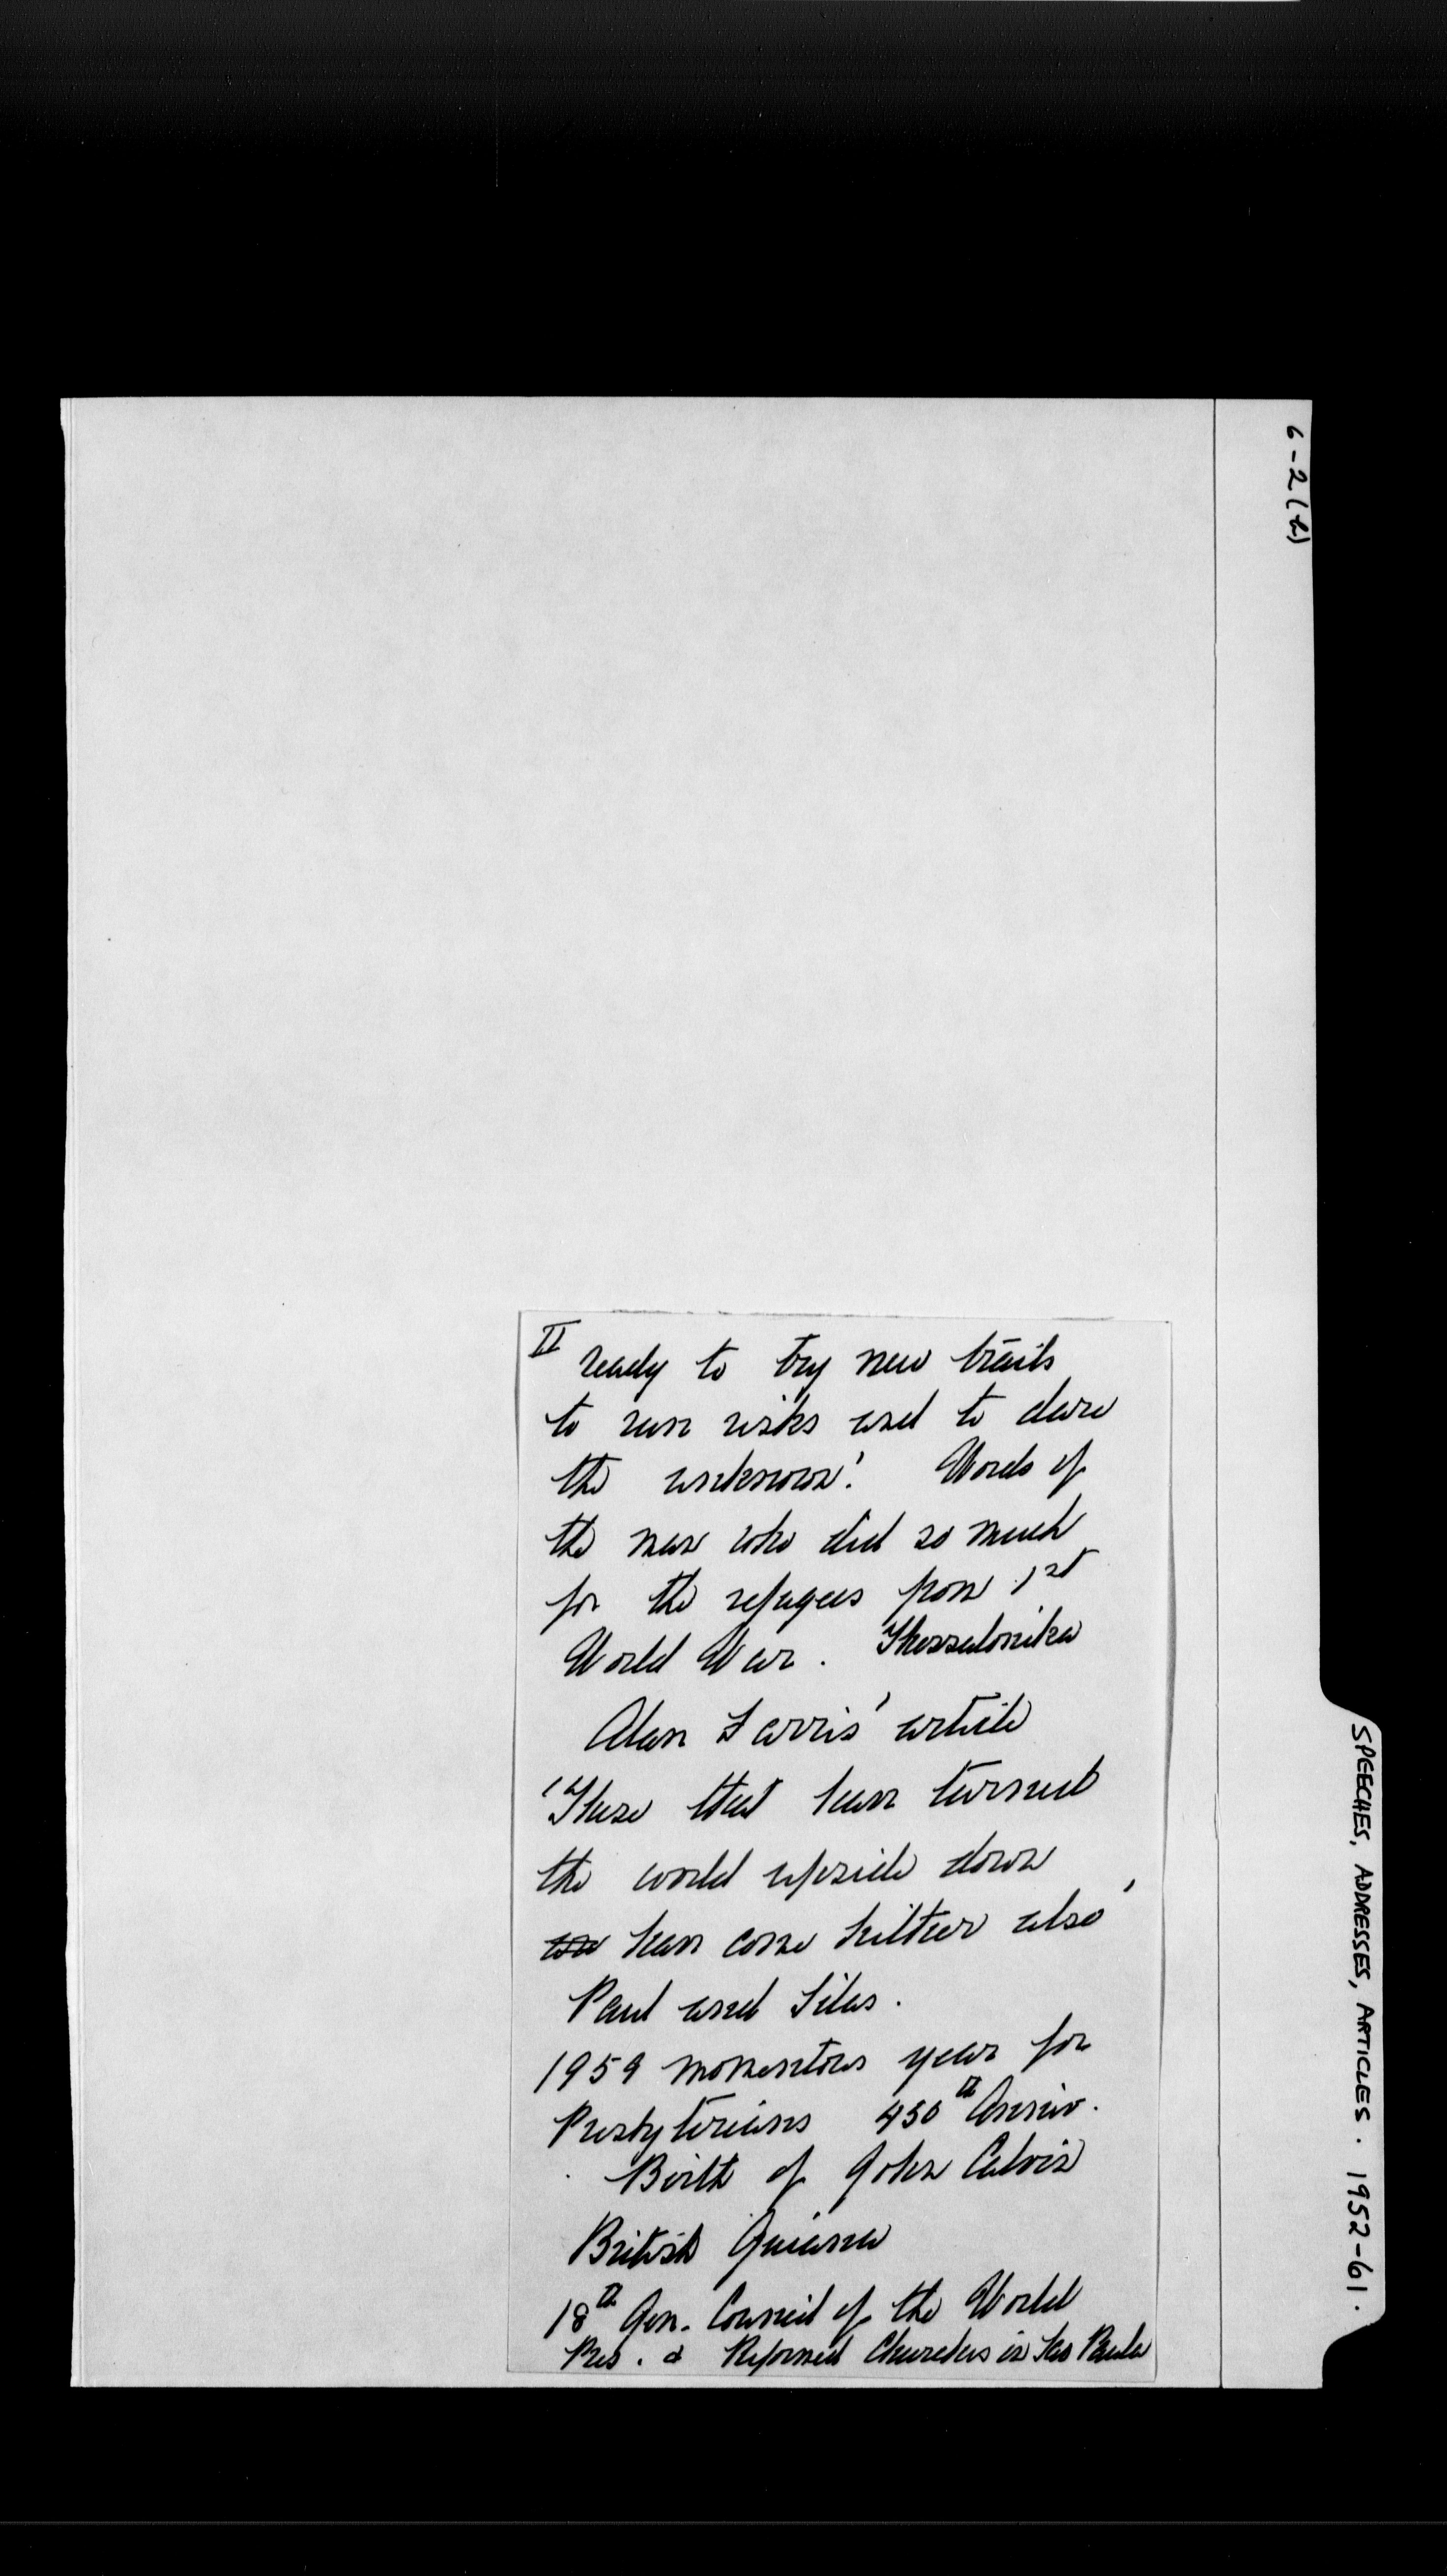 6-2(h)
SPEECHES, ADDRESSES, ARTICLES. 1952-61.
II ready to try new trails
to run risks and to dare
the unknown!' Words of
the man who did so much
for the refugees from 1st
World War. Thessalonika
Alan Farris' article
'These that have turned
the world upside down
have come hither also'
Paul and Silas.
1959 momentous year for
Presbyterians 450th Anniv.
Birth of John Calvin
British Guiana
18th Gen. Council of the World
Pres. & Reformed Churches in Sao Paulo